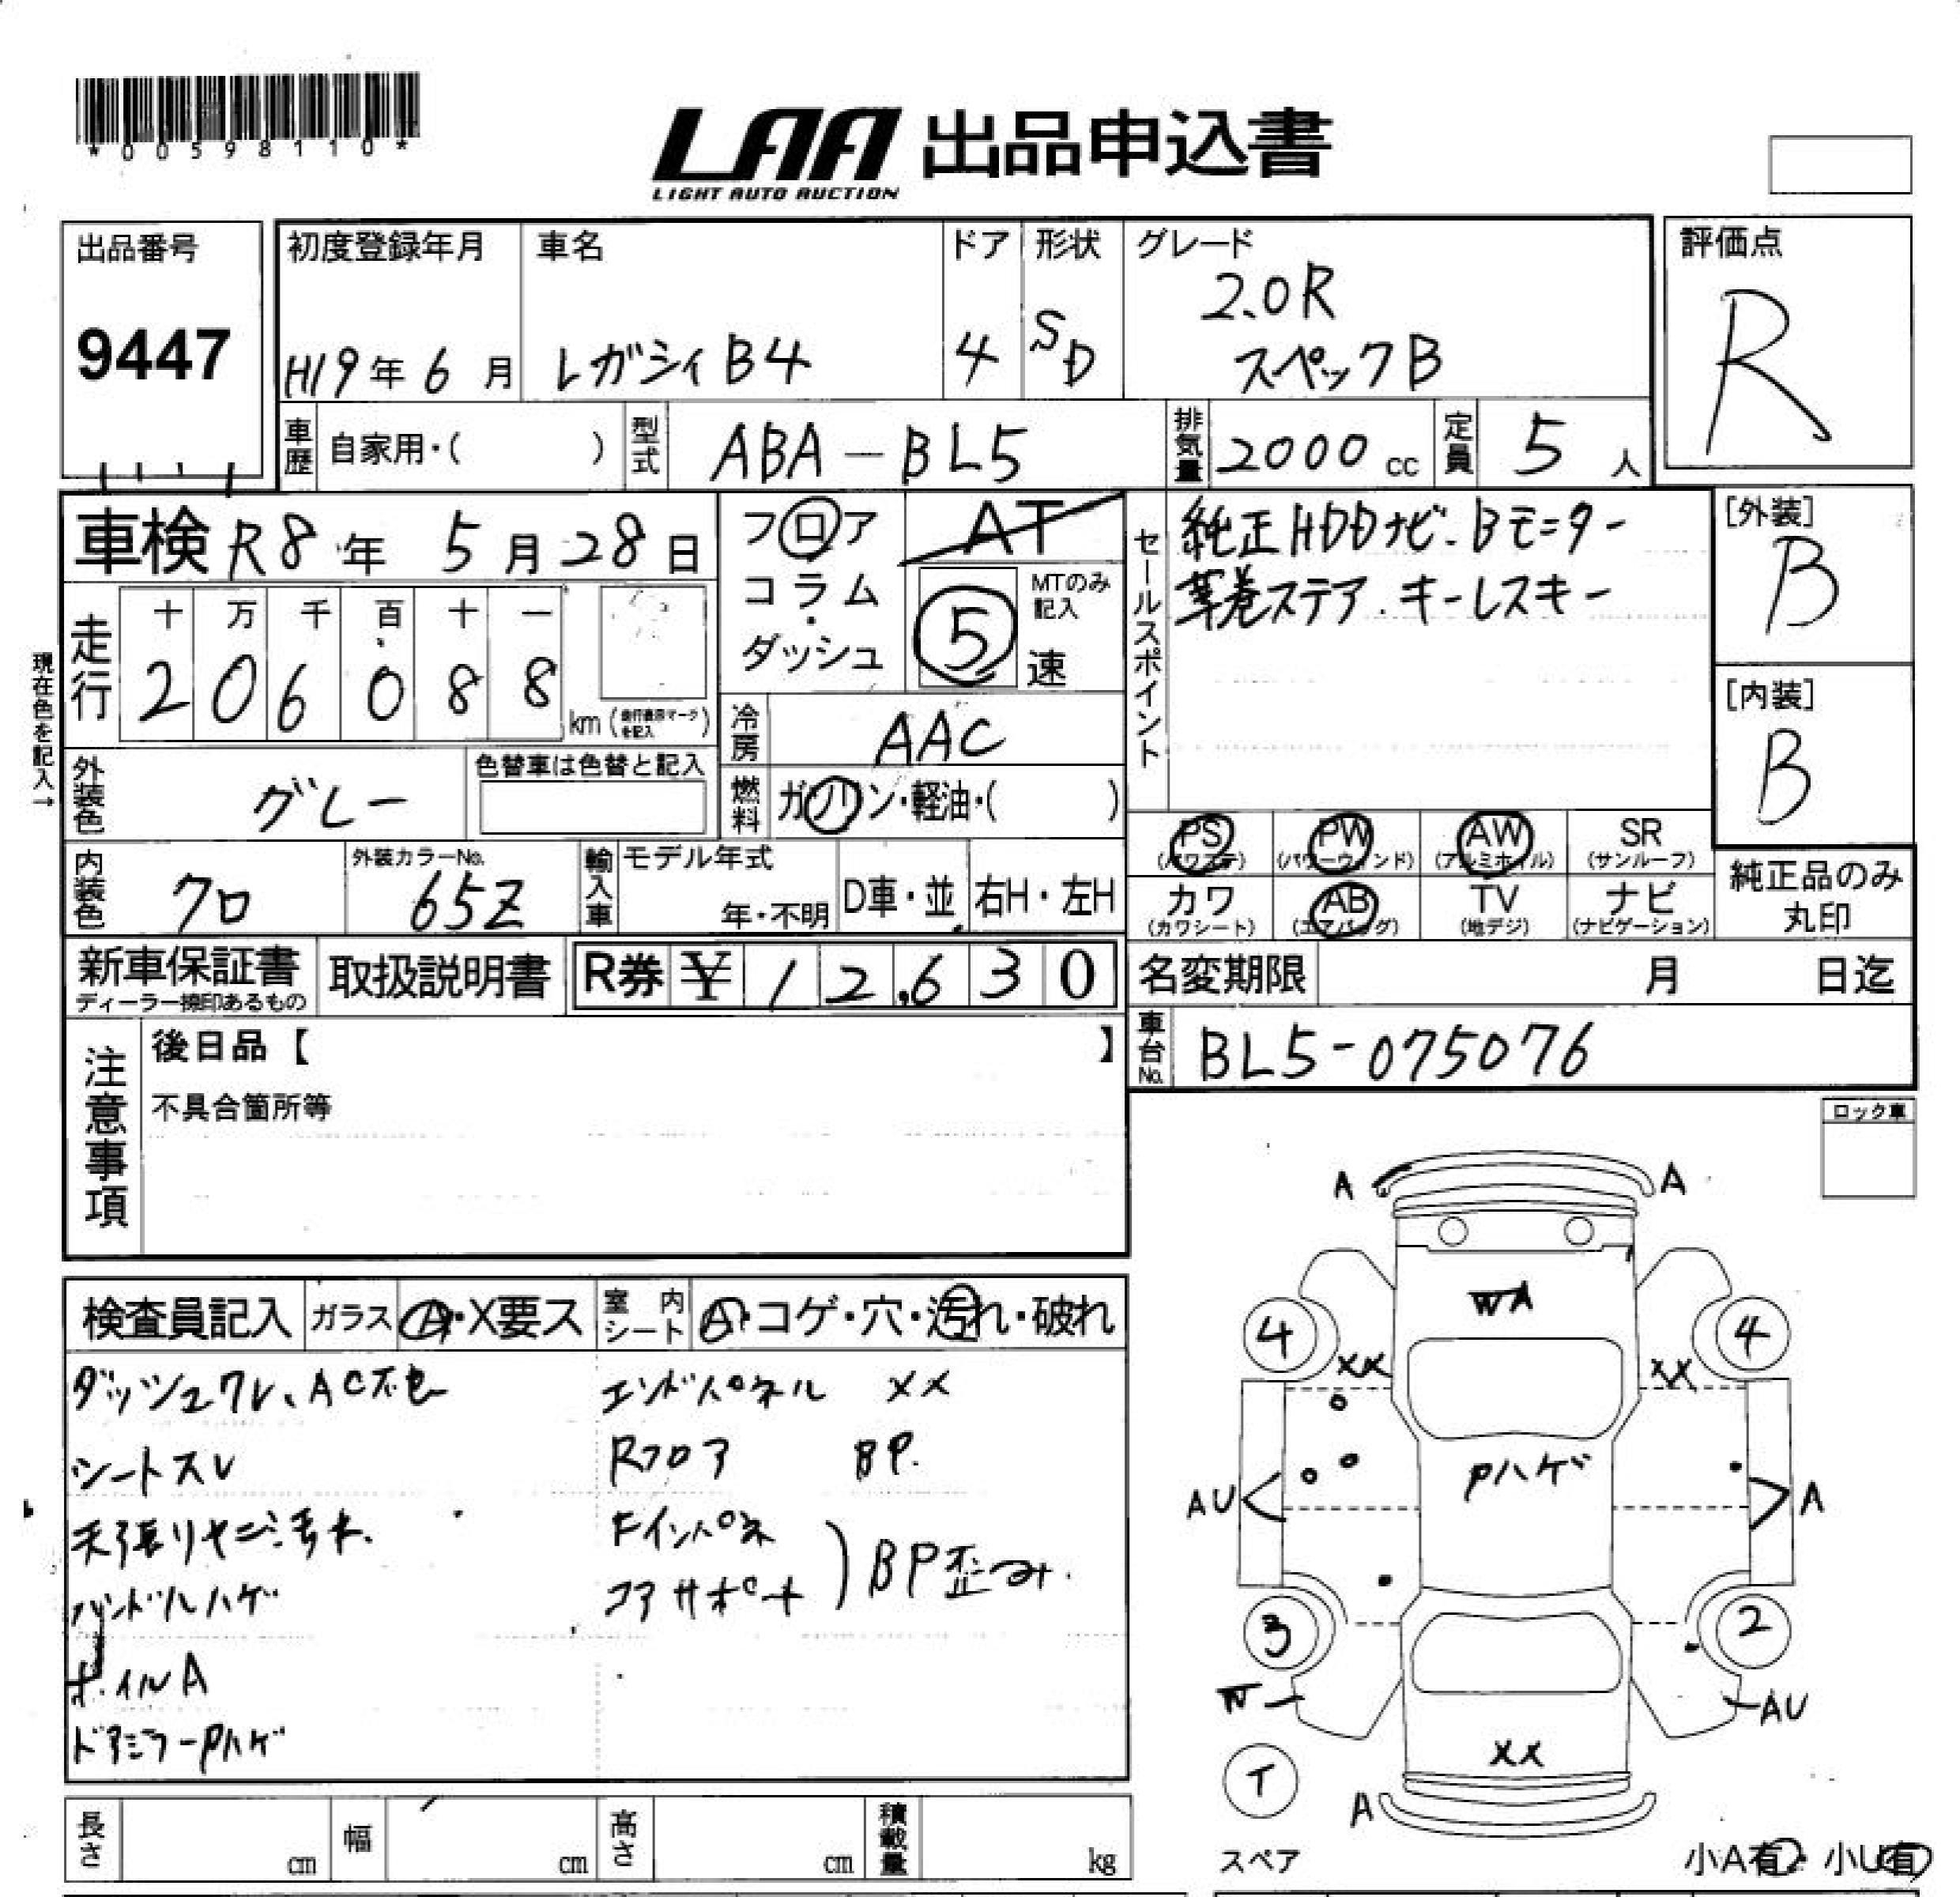 *00598110*
LAA 出品申込書
LIGHT AUTO AUCTION
出品番号
9447
初度登録年月
H19年6月
車名
レガシィB4
ドア
4
形状
SD
グレード
2.0R
スペックB
評価点
R
車歴 自家用・( )
型式 ABA-BL5
排気量 2000 cc
定員 5 人
車検 R8年 5月28日
フロア
コラム
・
ダッシュ
AT
MTのみ
記入
5 速
セールスポイント
純正HDDナビ・Bモニター
革巻ステア・キーレスキー
[外装]
B
[内装]
B
現在色を記入→
走行
十 万 千 百 十 一
2 0 6 0 8 8 km
(走行表示マークを記入)
冷房 AAC
外装色 グレー
色替車は色替と記入
燃料 ガソリン・軽油・( )
PS
(パワステ)
PW
(パワーウィンド)
AW
(アルミホイル)
SR
(サンルーフ)
カワ
(カワシート)
AB
(エアバッグ)
TV
(地デジ)
ナビ
(ナビゲーション)
純正品のみ
丸印
内装色 クロ
外装カラーNo.
65Z
輸入車
モデル年式
年・不明
D車・並
右H・左H
新車保証書
ディーラー捺印あるもの
取扱説明書
R券 ¥ 12,630
名変期限 月 日迄
車台No. BL5-075076
注意事項
後日品【 】
不具合箇所等
ロック車
検査員記入
ガラス A・X要ス
室内シート A・コゲ・穴・汚れ・破れ
ダッシュワレ、AC不包
シートスレ
天張りヤニ汚れ.
ハンドルハゲ
ホイルA
ドアミラーPハゲ
エンドパネル XX
Rフロア BP.
Fインパネ
コアサポート
BP歪み.
A A
WA
4 4
XX XX
Pハゲ
AU A
3 2
W AU
XX
T
A
スペア
小A有・小U有
長さ cm
幅 cm
高さ cm
積載量 kg